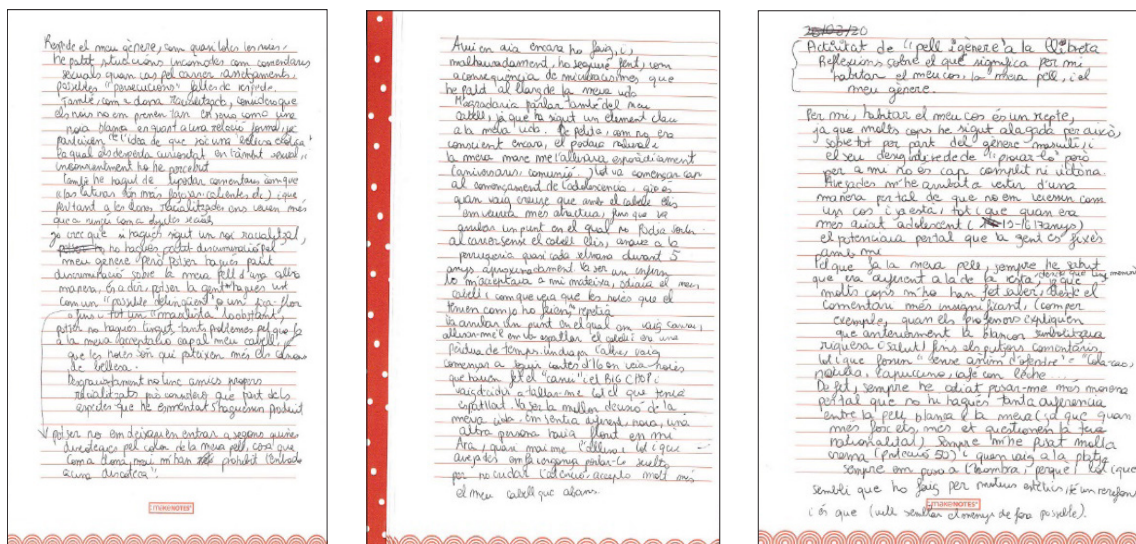 Respecte el meu gènere, com quasi totes les noies,
he patit situacions incòmodes com comentaris
sexuals quan cas pel carrer, assetjaments,
possibles "persecucions" faltes de respecte.
També, com a dona racialitzada, considero que
els nois no em prenen tan en serio com a una
noia blanca en quant a una relació formal, ja
parteixen de l'idea de que sóc una "bellesa exòtica"
la qual els desperta curiositat en l'àmbit sexual,
inconscientment ho he percebut.
També he hagut de suportar comentaris com que
"las latinas son más fogosas (calientes etc.) i que
per tant a les dones racialitzades ens veuen més
que a ningú com a objecte sexual.
Jo crec que si hagués sigut un noi racialitzat,
no hagués patit discriminació pel
meu gènere però potser hagués patit
discriminació sobre la meva pell d'una altra
manera, és a dir, potser la gent hagués vist
com un "possible delinqüent" o un
a fins i tot un "masclista" lo obstant,
potser no hagués tingut tants problemes pel que fa
a la meva acceptació cap al meu cabell, ja
que les noies són qui pateixen més els cànons
de bellesa.
Desgraciadament no tinc amics propers
racialitzats però considero que part dels
aspectes que he esmentat s'haguessin produït
potser no em deixarien entrar a segons quines
discoteques pel color de la meva pell, cosa que
com a dona, mai m'han prohibit l'entrada
a una discoteca".
MAKENOTES
Avui en dia encara ho faig, i,
malhauradament, ho seguiré fent, com
a conseqüència de microracismes que
he patit al llarg de la meva vida
M'agradaria parlar també del meu
cabell, ja que ha sigut un element clau
a la meva vida. De petita, com no era
conscient encara, el portava natural i
la meva mare me l'allisava esporàdicament
(aniversaris, comunió...) tot va començar cap
al començament de l'adolescència, que es
quan vaig creure que amb el cabell llis
em veuria més atractiva, fins que va
arribar un punt en el qual no podia sortir
al carrer sense el cabell llis, anava a la
perruqueria quasi cada setmana durant 5
anys aproximadament. Va ser un infern
No m'acceptava a mi mateixa, odiava el meu
cabell i com que veia que les noies que el
tenien com jo ho feien, repetia
Va arribar un punt en el qual em vaig cansar,
allisar-me'l em va espatllar el cabell i era una
pèrdua de temps. Un dia per l'altre vaig
començar a seguir comtes d'IG on veia noies
que havien fet el "canvi" i el BIG CHOP i
vaig decidir a tallar-me tot el que tenia
espatllat. Va ser la millor decisió de la
meva vida. Em sentia diferent, nova, una
altra persona havia florit en mi
Ara, quasi mai me l'alliso i tot i que
a vegades em fa vergonya portar-lo suelto
per no cridar l'atenció, accepto molt més
el meu cabell que abans.
28/03/20
Activitat de "pell i gènere" a la llibreta
Reflexions sobre el que significa per mi
habitar el meu cos, la meva pell, i el
meu gènere.
Per mi, habitar el meu cos és un repte,
ja que molts cops he sigut alagada per això,
sobretot per part del gènere masculí i
el seu desig de "provar-lo" però
per a mi no és cap complit ni victòria.
Vegades m'he arribat a vestir d'una
manera per tal de que no em veiessin com
un cos i ja està, tot i que quan era
més aviat adolescent (15-16-17 anys)
el potenciava per tal que la gent es fixés
amb mi
Pel que fa la meva pell, sempre he sabut
que era diferent a la de la resta, ja que
molts cops m'ho han fet saber, desde el
comentari més insignificant, (com per
exemple, quan els professors expliquen
que anteriorment la blancor simbolitzava
riquesa i salut) fins els putjors comentaris,
tot i que fossin "sense ànim d'ofendre": "Cola-cao,
nutella, capuccino, café con leche...
De fet, sempre he odiat posar-me més morena
per tal que no hi hagués tanta diferencia
entre la pell blanca i la meva (ja que quan
més fosc ets, més et questionen la teva
nationalitat), sempre m'he posat molta
crema (protecció 50) i quan vaig a la platja
sempre em poso a l'hombra, perquè tot i que
sembli que ho faig per motius estètics, té un rerefons
i és que (vull semblar el menys de fora possible).
MAKENOTES